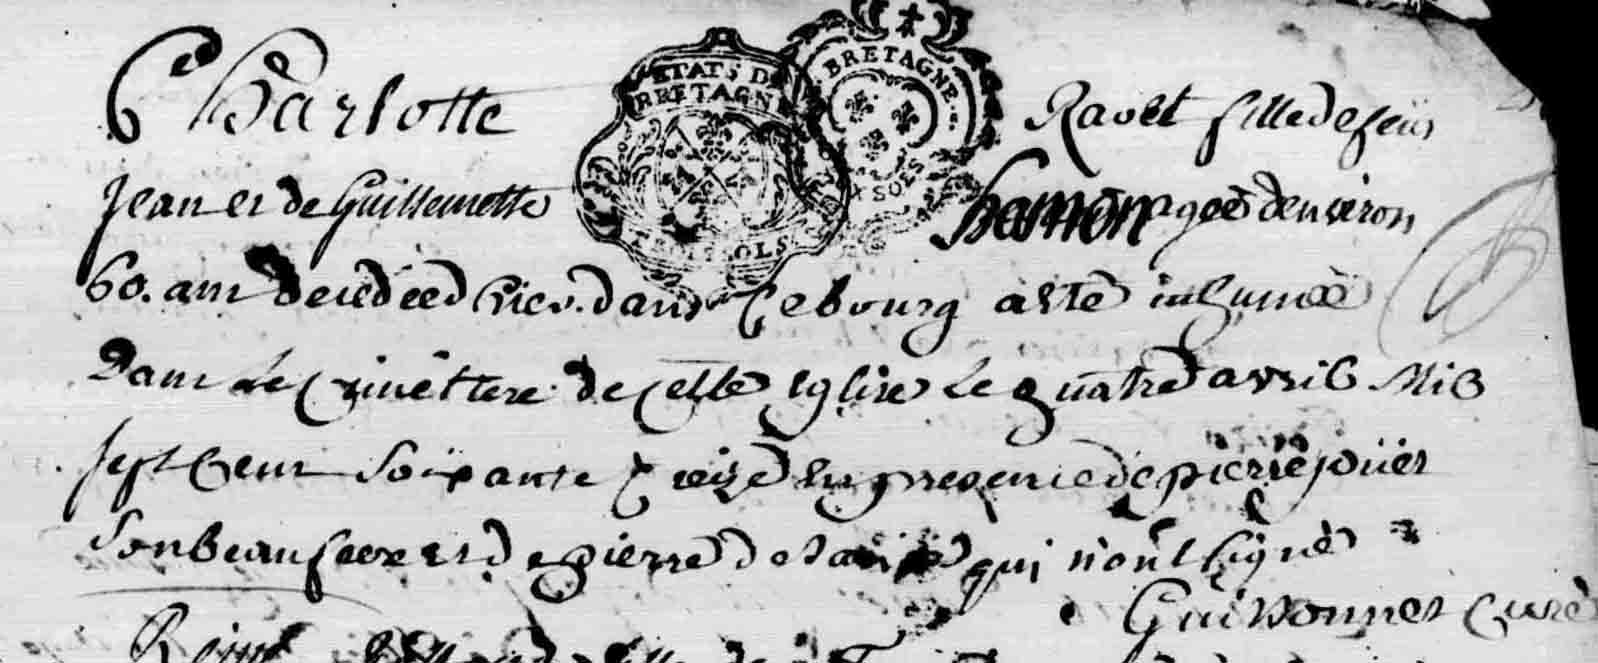 Charlotte Ravet fille de feu
Jean et de Guillemette hamon agée denviron
60. ans decedeé hier dans ce bourg a esté inhumeè
Dans le cimettere de cette Eglise le quatre avril Mil
sept Cent soixante treize En presence de pierre joüet
son beaufrere et de pierre qui n'ont signé
Guissonnet Curé
ETATS DE
BRETAGNE
SOLS
BRETAGNE
SOLS